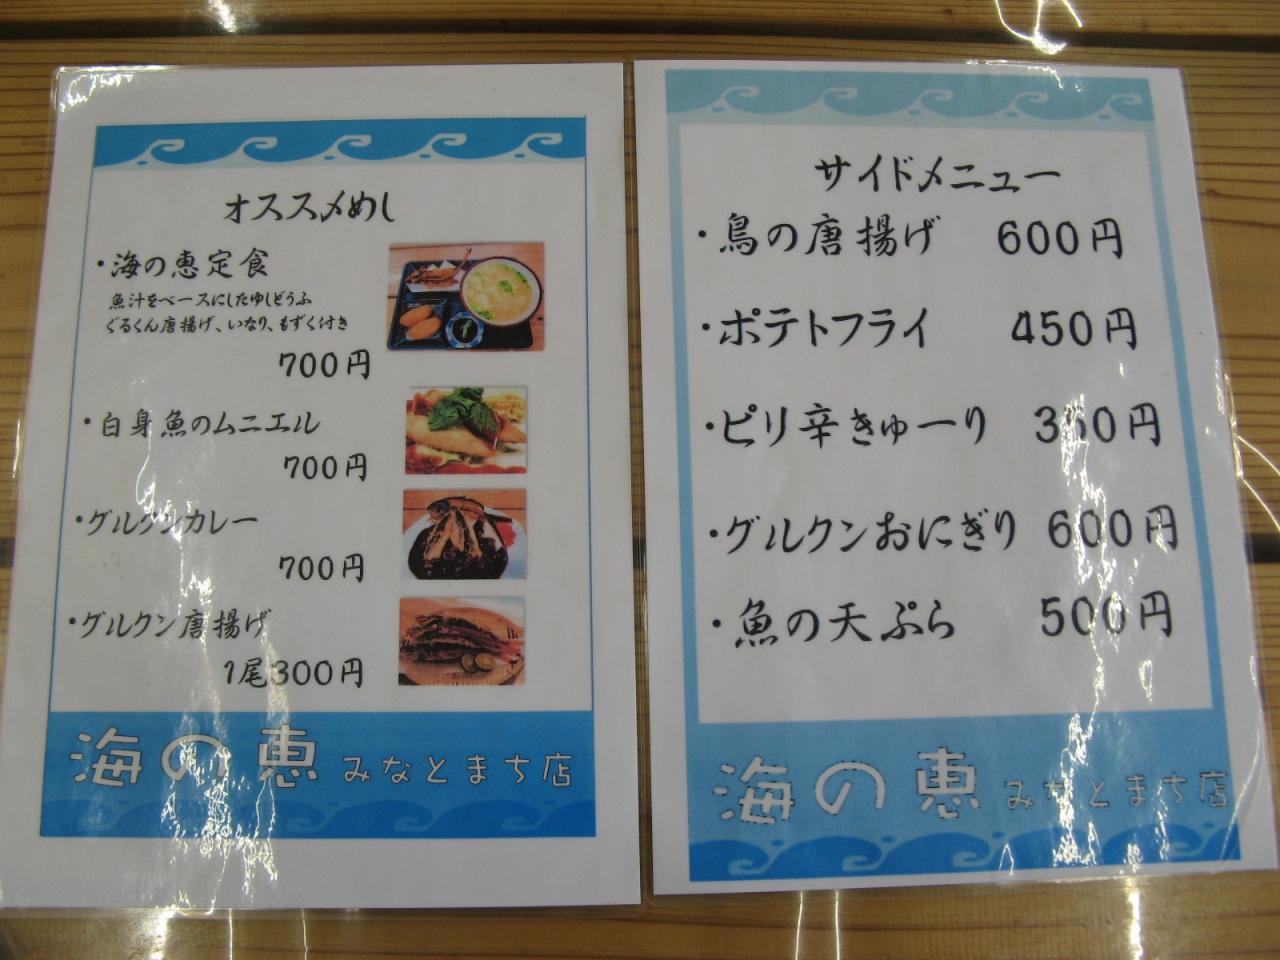 オススメめし
・海の恵定食
魚汁をベースにしたゆしどうふ
ぐるくん唐揚げ、いなり、もずく付き
700円
・白身魚のムニエル
700円
・グルクンカレー
700円
・グルクン唐揚げ
1尾300円
海の恵 みなとまち店
サイドメニュー
・鳥の唐揚げ 600円
・ポテトフライ 450円
・ピリ辛きゅーり 350円
・グルクンおにぎり 600円
・魚の天ぷら 500円
海の恵 みなとまち店